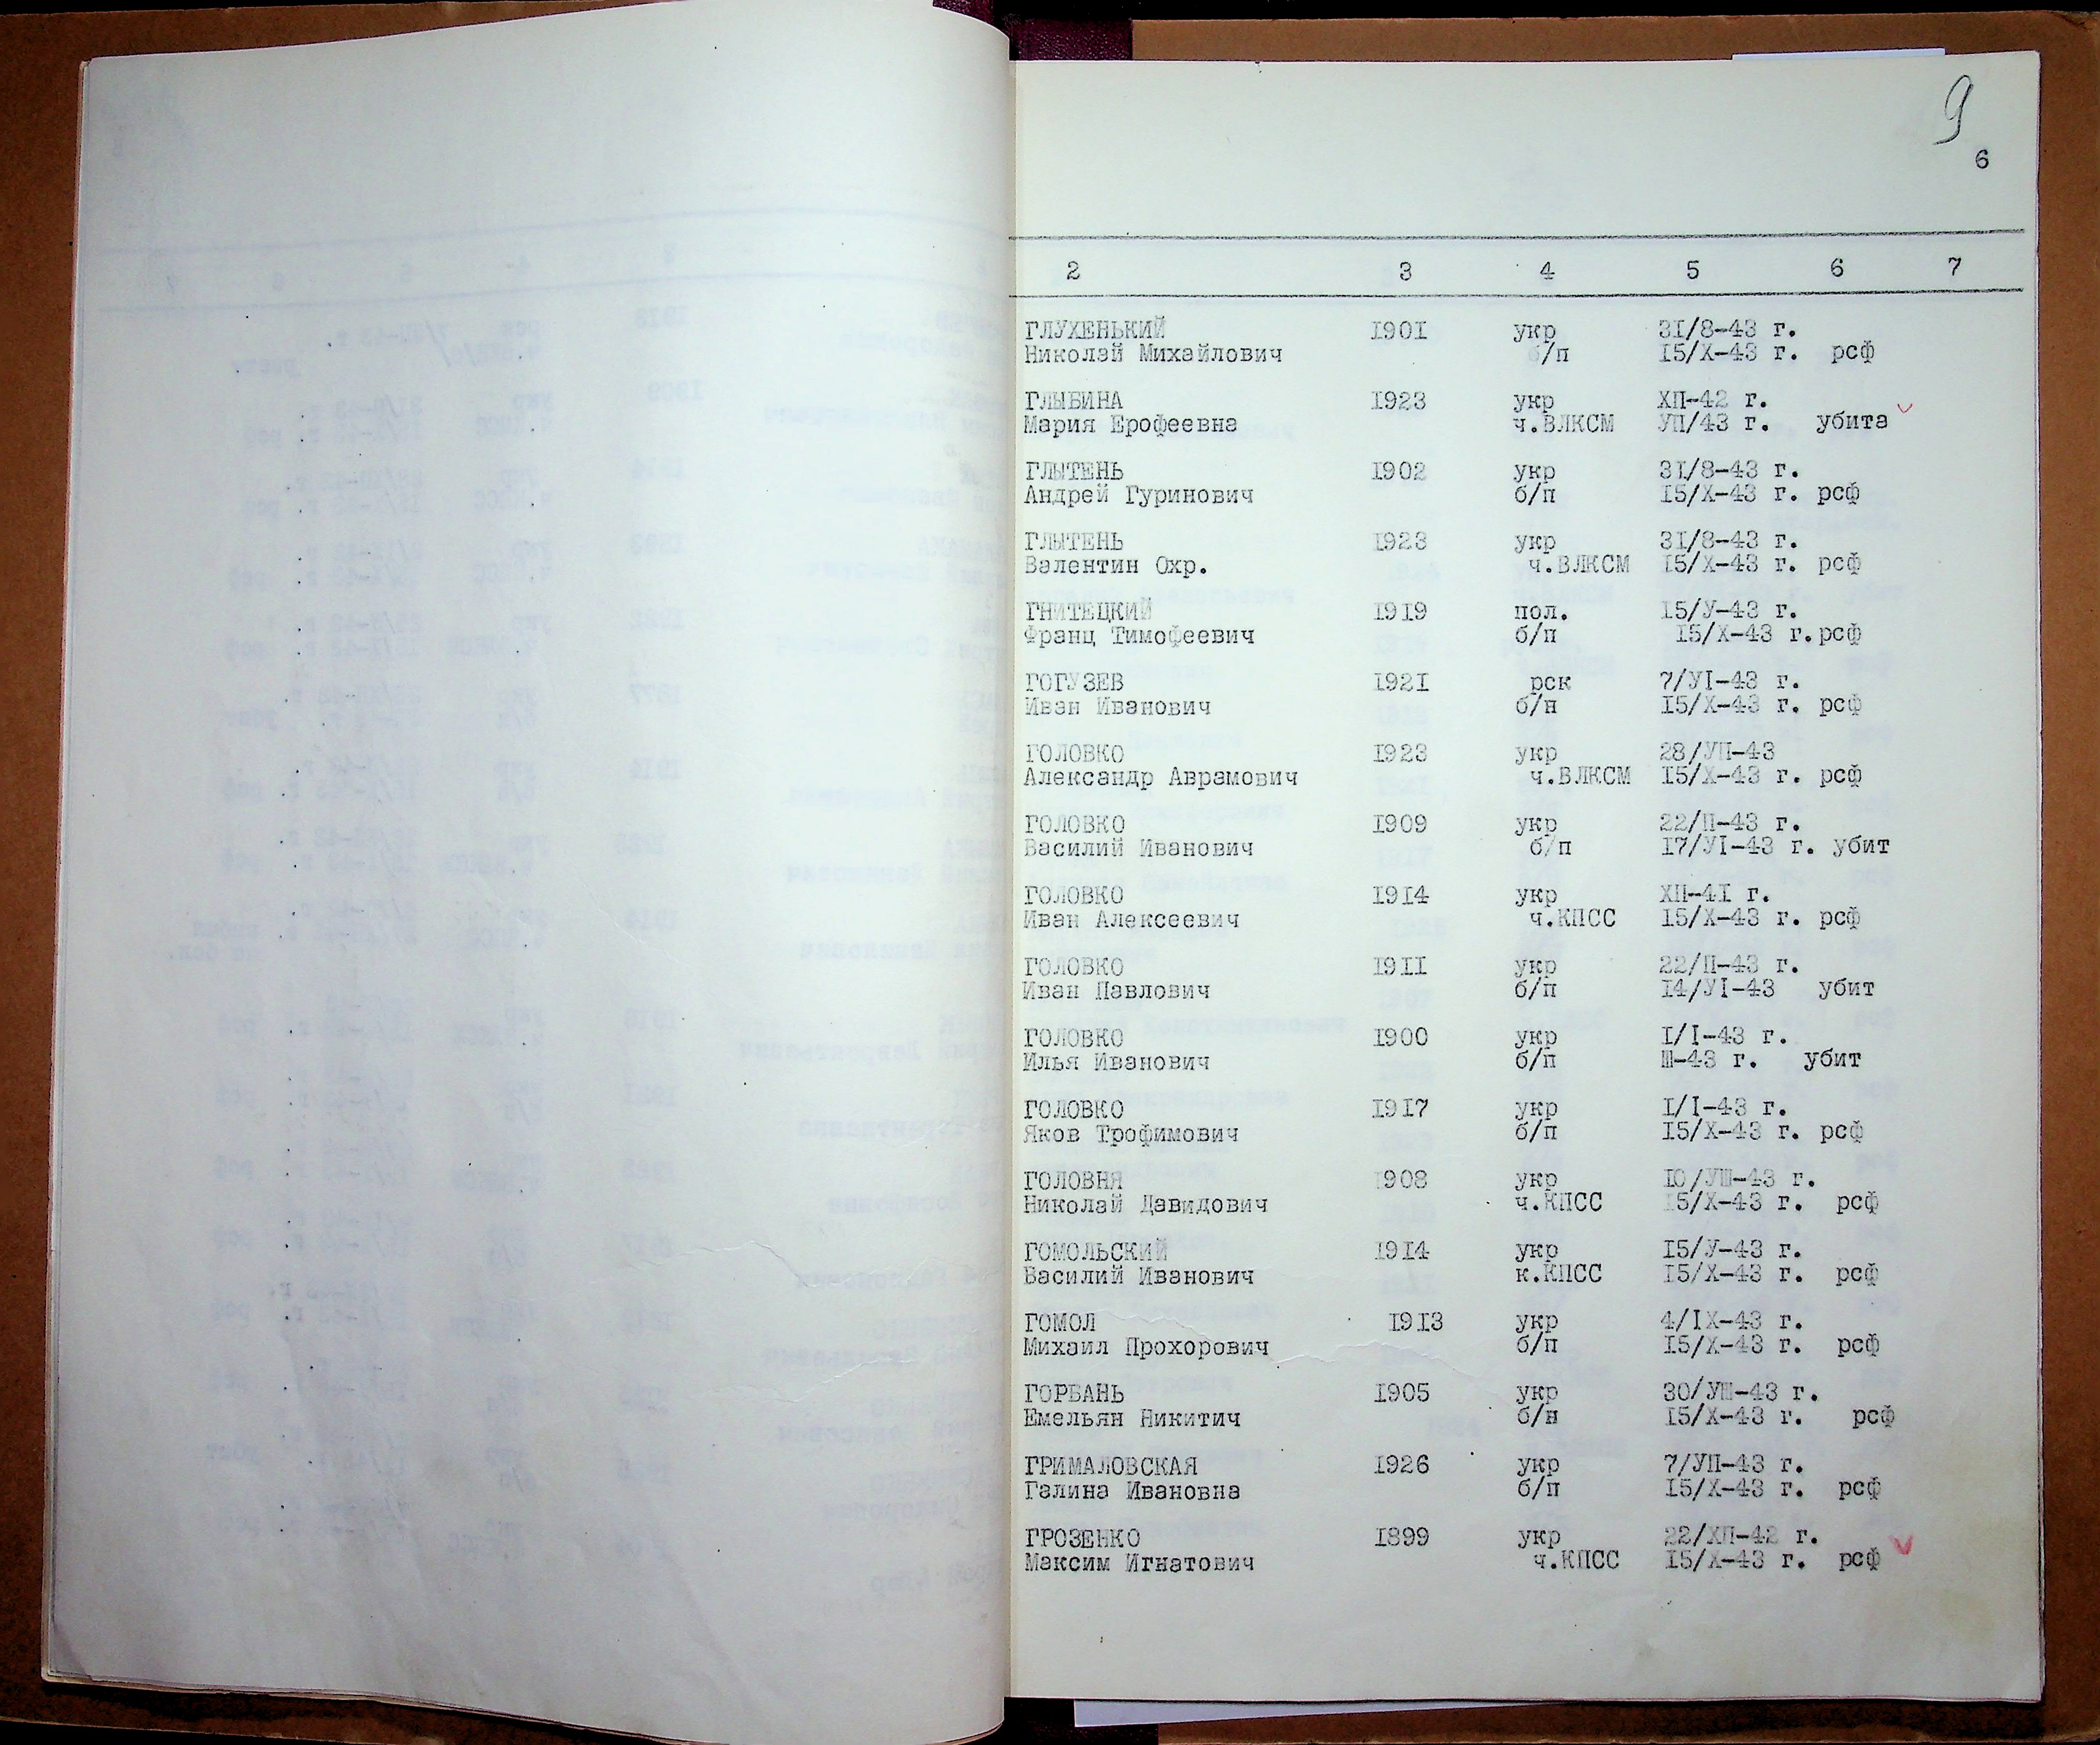 9
6
2 3 4 5 6 7
ГЛУХЕНЬКИЙ 1901 укр 31/8-43 г.
Николай Михайлович б/п 15/Х-43 г. рсф
ГЛЫБИНА 1923 укр ХП-42 г.
Мария Ерофеевна ч.ВЛКСМ УП/43 г. убита
ГЛЫТЕНЬ 1902 укр 31/8-43 г.
Андрей Гуринович б/п 15/Х-43 г. рсф
ГЛЫТЕНЬ 1923 укр 31/8-43 г.
Валентин Охр. ч.ВЛКСМ 15/Х-43 г. рсф
ГНИТЕЦКИЙ 1919 пол. 15/У-43 г.
Франц Тимофеевич б/п 15/Х-43 г. рсф
ГОГУЗЕВ 1921 рск 7/УI-43 г.
Иван Иванович б/н 15/Х-43 г. рсф
ГОЛОВКО 1923 укр 28/УП-43
Александр Аврамович ч.ВЛКСМ 15/Х-43 г. рсф
ГОЛОВКО 1909 укр 22/П-43 г.
Василий Иванович б/п 17/УI-43 г. убит
ГОЛОВКО 1914 укр ХП-41 г.
Иван Алексеевич ч.КПСС 15/Х-43 г. рсф
ГОЛОВКО 1911 укр 22/П-43 г.
Иван Павлович б/п 14/УI-43 убит
ГОЛОВКО 1900 укр I/I-43 г.
Илья Иванович б/п Ш-43 г. убит
ГОЛОВКО 1917 укр I/I-43 г.
Яков Трофимович б/п 15/Х-43 г. рсф
ГОЛОВНЯ 1908 укр 10/УШ-43 г.
Николай Давидович ч.КПСС 15/Х-43 г. рсф
ГОМОЛЬСКИЙ 1914 укр 15/У-43 г.
Василий Иванович к.КПСС 15/Х-43 г. рсф
ГОМОЛ 1913 укр 4/IХ-43 г.
Михаил Прохорович б/п 15/Х-43 г. рсф
ГОРБАНЬ 1905 укр 30/УШ-43 г.
Емельян Никитич б/н 15/Х-43 г. рсф
ГРИМАЛОВСКАЯ 1926 укр 7/УП-43 г.
Галина Ивановна б/п 15/Х-43 г. рсф
ГРОЗЕНКО 1899 укр 22/ХП-42 г.
Максим Игнатович ч.КПСС 15/Х-43 г. рсф